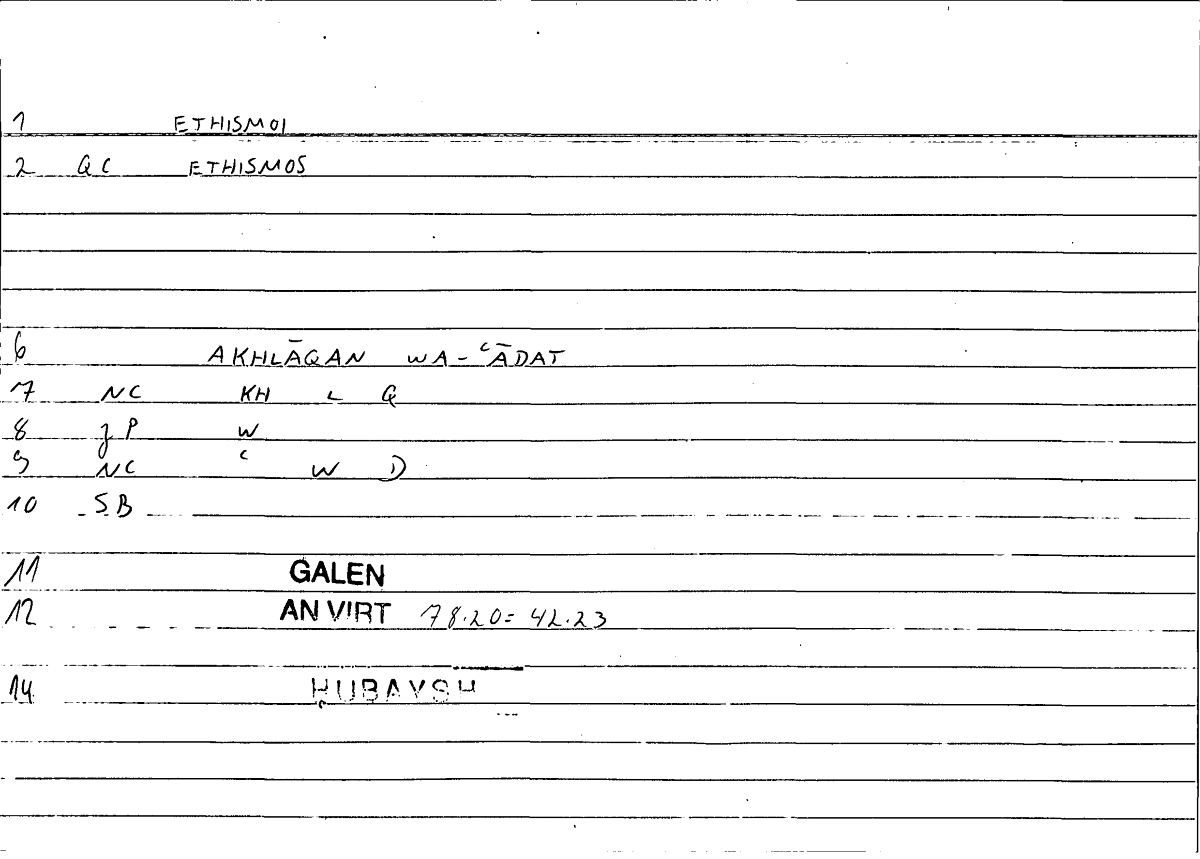 1 ETHISMOI
2 QC ETHISMOS
6 AKHLĀQAN WA-ʿĀDAT
7 NC KH L Q
8 JP W
9 NC ʿ W D
10 SB
11 GALEN
12 AN VIRT 78.20= 42.23
14 ḤUBAYSH